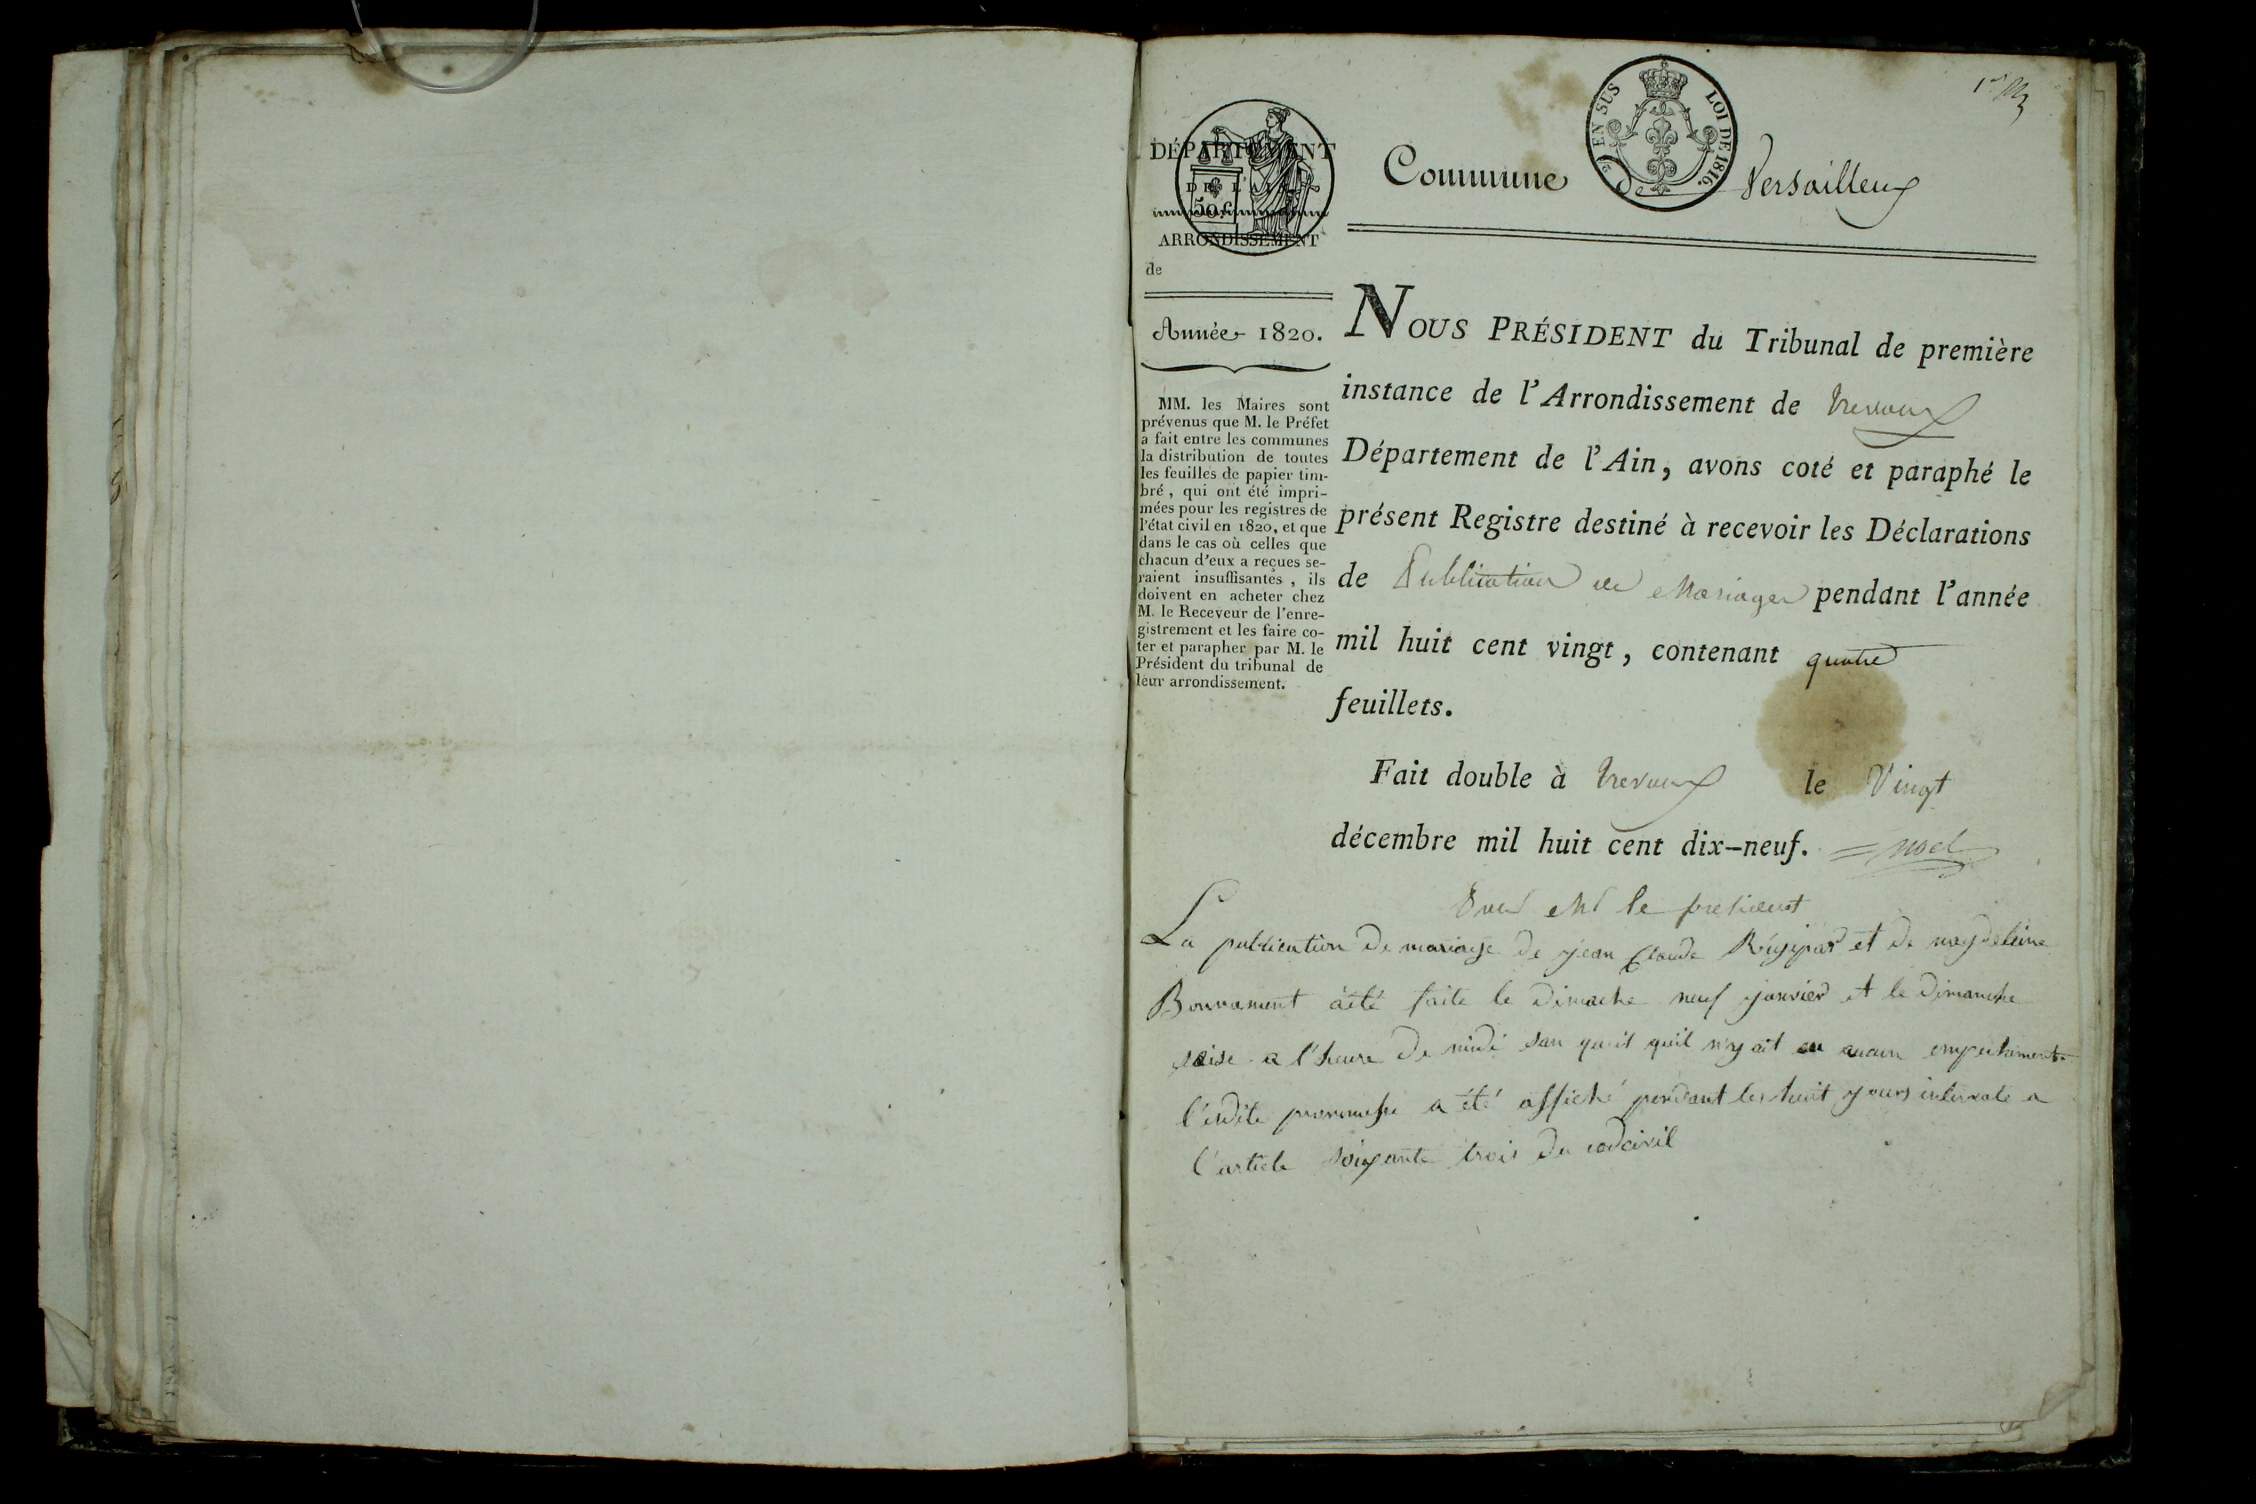 1er
EN SUS LOI DE 1816.
DÉPARTEMENT
DE L'AIN
50 c.
ARRONDISSEMENT
de
Commune de Versailleux
Année 1820.
MM. les Maires sont
prévenus que M. le Préfet
a fait entre les communes
la distribution de toutes
les feuilles de papier tim-
bré, qui ont été impri-
mées pour les registres de
l'état civil en 1820, et que
dans le cas où celles que
chacun d'eux a reçues se-
raient insuffisantes, ils
doivent en acheter chez
M. le Receveur de l'enre-
gistrement et les faire co-
ter et parapher par M. le
Président du tribunal de
leur arrondissement.
NOUS PRÉSIDENT du Tribunal de première
instance de l'Arrondissement de Trevoux
Département de l'Ain, avons coté et paraphé le
présent Registre destiné à recevoir les Déclarations
de Publication de Mariages pendant l'année
mil huit cent vingt, contenant quatre
feuillets.
Fait double à Trevoux le Vingt
décembre mil huit cent dix-neuf. noel
Pour M le president
La publication de mariage de jean Claude et de magdeleine
a été faite le dimache neuf janvier et le dimanche
seise a l'heure de midi san qu'il n'y ait eu aucun empechement
a été affiché pendant les huit jours intervale a
l'article soixante trois du codcivil